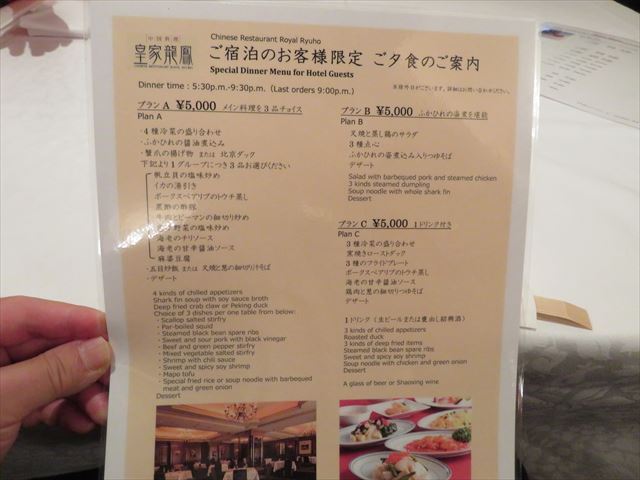 中国料理
皇家龍鳳
CHINESE RESTAURANT ROYAL RYUHO
Chinese Restaurant Royal Ryuho
ご宿泊のお客様限定 ご夕食のご案内
Special Dinner Menu for Hotel Guests
Dinner time : 5:30p.m.-9:30p.m. (Last orders 9:00p.m.)
プランA ¥5,000 メイン料理を3品チョイス
Plan A
・4種冷菜の盛り合わせ
・ふかひれの醤油煮込み
・蟹爪の揚げ物 または 北京ダック
下記より1グループにつき3品お選びください
帆立貝の塩味炒め
イカの湯引き
ポークスペアリブのトウチ蒸し
黒酢の酢豚
牛肉とピーマンの細切り炒め
野菜の塩味炒め
海老のチリソース
海老の甘辛醤油ソース
麻婆豆腐
・五目炒飯 または 叉焼と葱の細切り汁そば
・デザート
4 kinds of chilled appetizers
Shark fin soup with soy sauce broth
Deep fried crab claw or Peking duck
Choice of 3 dishes per one table from below:
・Scallop salted stirfry
・Par-boiled squid
・Steamed black bean spare ribs
・Sweet and sour pork with black vinegar
・Beef and green pepper stirfry
・Mixed vegetable salted stirfry
・Shrimp with chili sauce
・Sweet and spicy soy shrimp
・Mapo tofu
・Special fried rice or soup noodle with barbequed
meat and green onion
Dessert
プランB ¥5,000 ふかひれの姿煮を堪能
Plan B
叉焼と蒸し鶏のサラダ
3種点心
ふかひれの姿煮込み入りつゆそば
デザート
Salad with barbequed pork and steamed chicken
3 kinds steamed dumpling
Soup noodle with whole shark fin
Dessert
プランC ¥5,000 1ドリンク付き
Plan C
3種冷菜の盛り合わせ
窯焼きローストダック
3種のフライドプレート
ポークスペアリブのトウチ蒸し
海老の甘辛醤油ソース
鶏肉と葱の細切りつゆそば
デザート
1ドリンク (生ビールまたは甕出し紹興酒)
3 kinds of chilled appetizers
Roasted duck
3 kinds of deep fried items
Steamed black bean spare ribs
Sweet and spicy soy shrimp
Soup noodle with chicken and green onion
Dessert
A glass of beer or Shaoxing wine